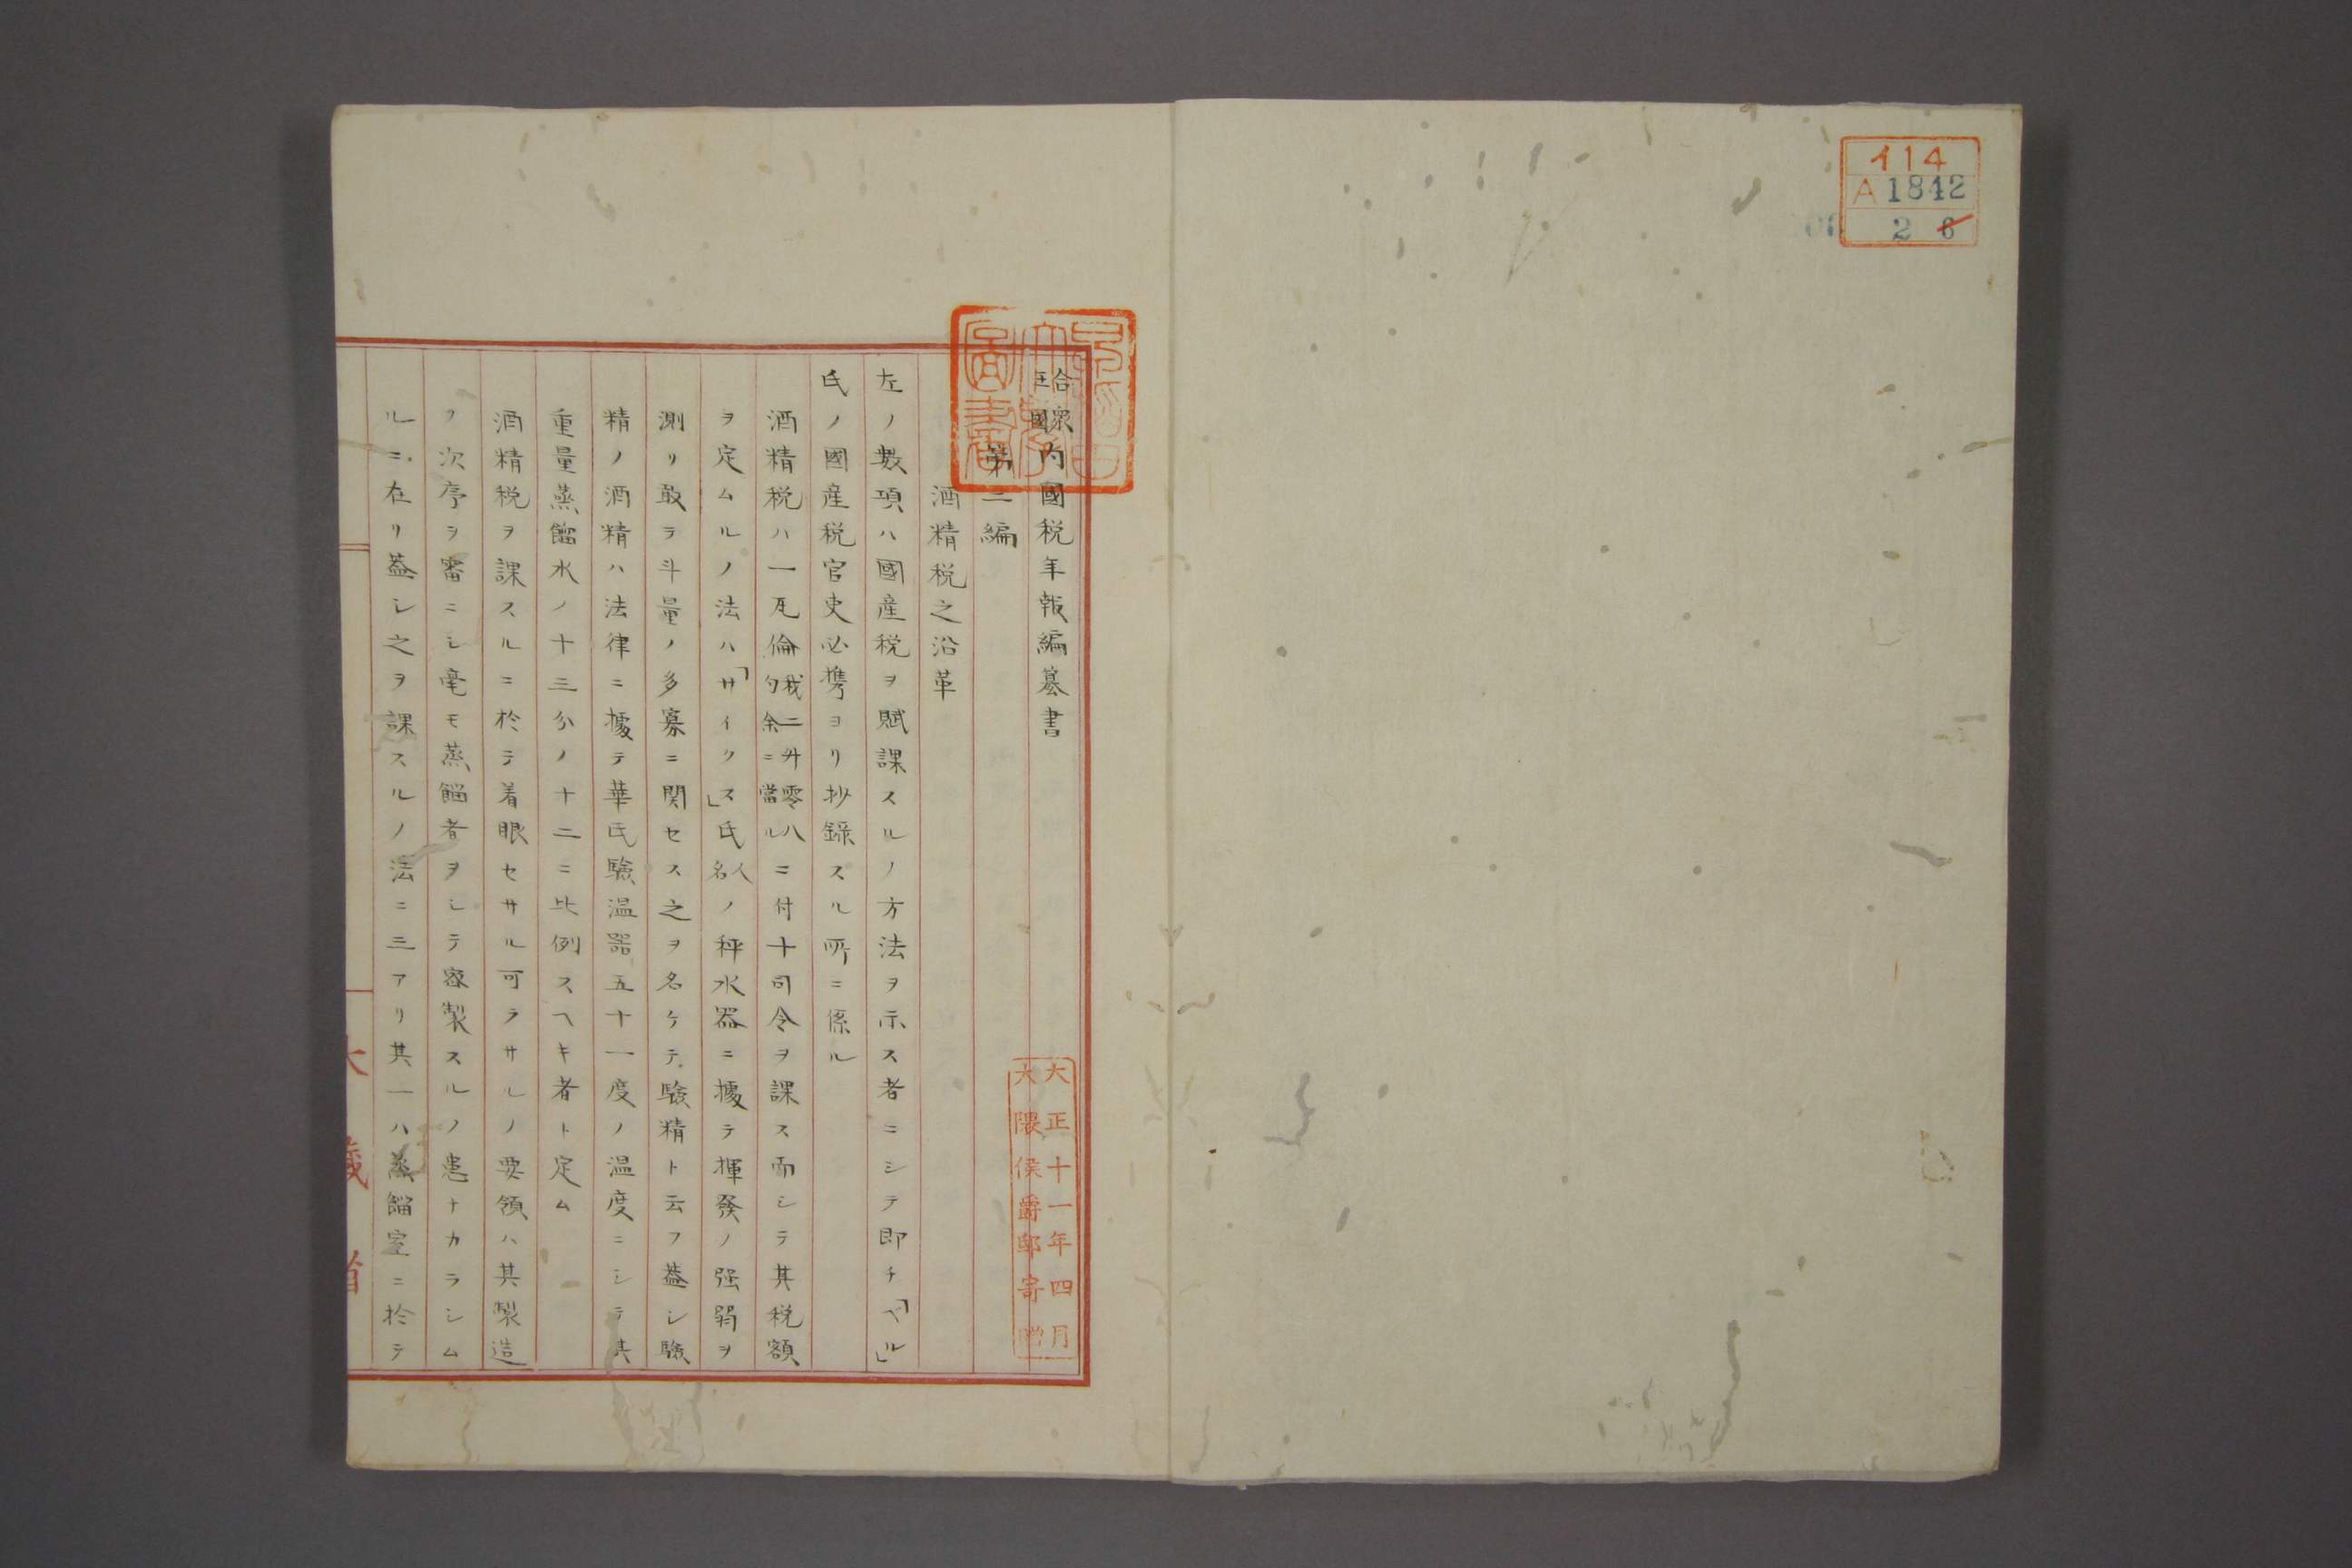 イ14
A 1842
2 6
合衆王國内國税年報編纂書
第二編
酒精税之沿革
左ノ數項ハ國産税ヲ賦課スルノ方法ヲ示ス者ニシテ即チ「ベル」
氏ノ國産税官吏必携ヨリ抄錄スル所ニ係ル
酒精税ハ一瓦倫我二升零八勺余ニ當ルニ付十司令ヲ課ス而シテ其税額
ヲ定ムルノ法ハ「サイクス」氏人名ノ秤水器ニ據テ揮發ノ强弱ヲ
測リ敢テ斗量ノ多寡ニ関セス之ヲ名ケテ驗精ト云フ蓋シ驗
精ノ酒精ハ法律ニ據テ華氏驗温器五十一度ノ温度ニシテ其
重量蒸餾水ノ十三分ノ十二ニ比例スヘキ者ト定ム
酒精税ヲ課スルニ於テ着眼セサル可ラサルノ要領ハ其製造
ノ次序ヲ審ニシ毫モ蒸餾者ヲシテ密製スルノ患ナカラシム
ルニ在リ蓋シ之ヲ課スルノ法ニ三アリ其一ハ蒸餾室ニ於テ
大正十一年四月
大隈侯爵邸寄贈
早稲田大學圖書
大藏省